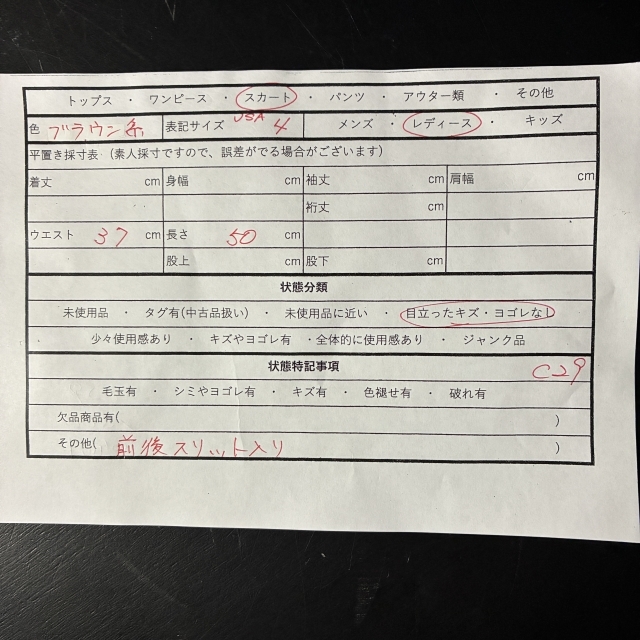 トップス ・ ワンピース ・ スカート ・ パンツ ・ アウター類 ・ その他
色 ブラウン系 表記サイズ USA 4 メンズ ・ レディース ・ キッズ
平置き採寸表（素人採寸ですので、誤差がでる場合がございます）
着丈 cm 身幅 cm 袖丈 cm 肩幅 cm
裄丈 cm
ウエスト 37 cm 長さ 50 cm
股上 cm 股下 cm
状態分類
未使用品 ・ タグ有(中古品扱い) ・ 未使用品に近い ・ 目立ったキズ・ヨゴレなし
少々使用感あり ・ キズやヨゴレ有 ・全体的に使用感あり ・ ジャンク品
状態特記事項 C29
毛玉有 ・ シミやヨゴレ有 ・ キズ有 ・ 色褪せ有 ・ 破れ有
欠品商品有( )
その他( 前後スリット入り )